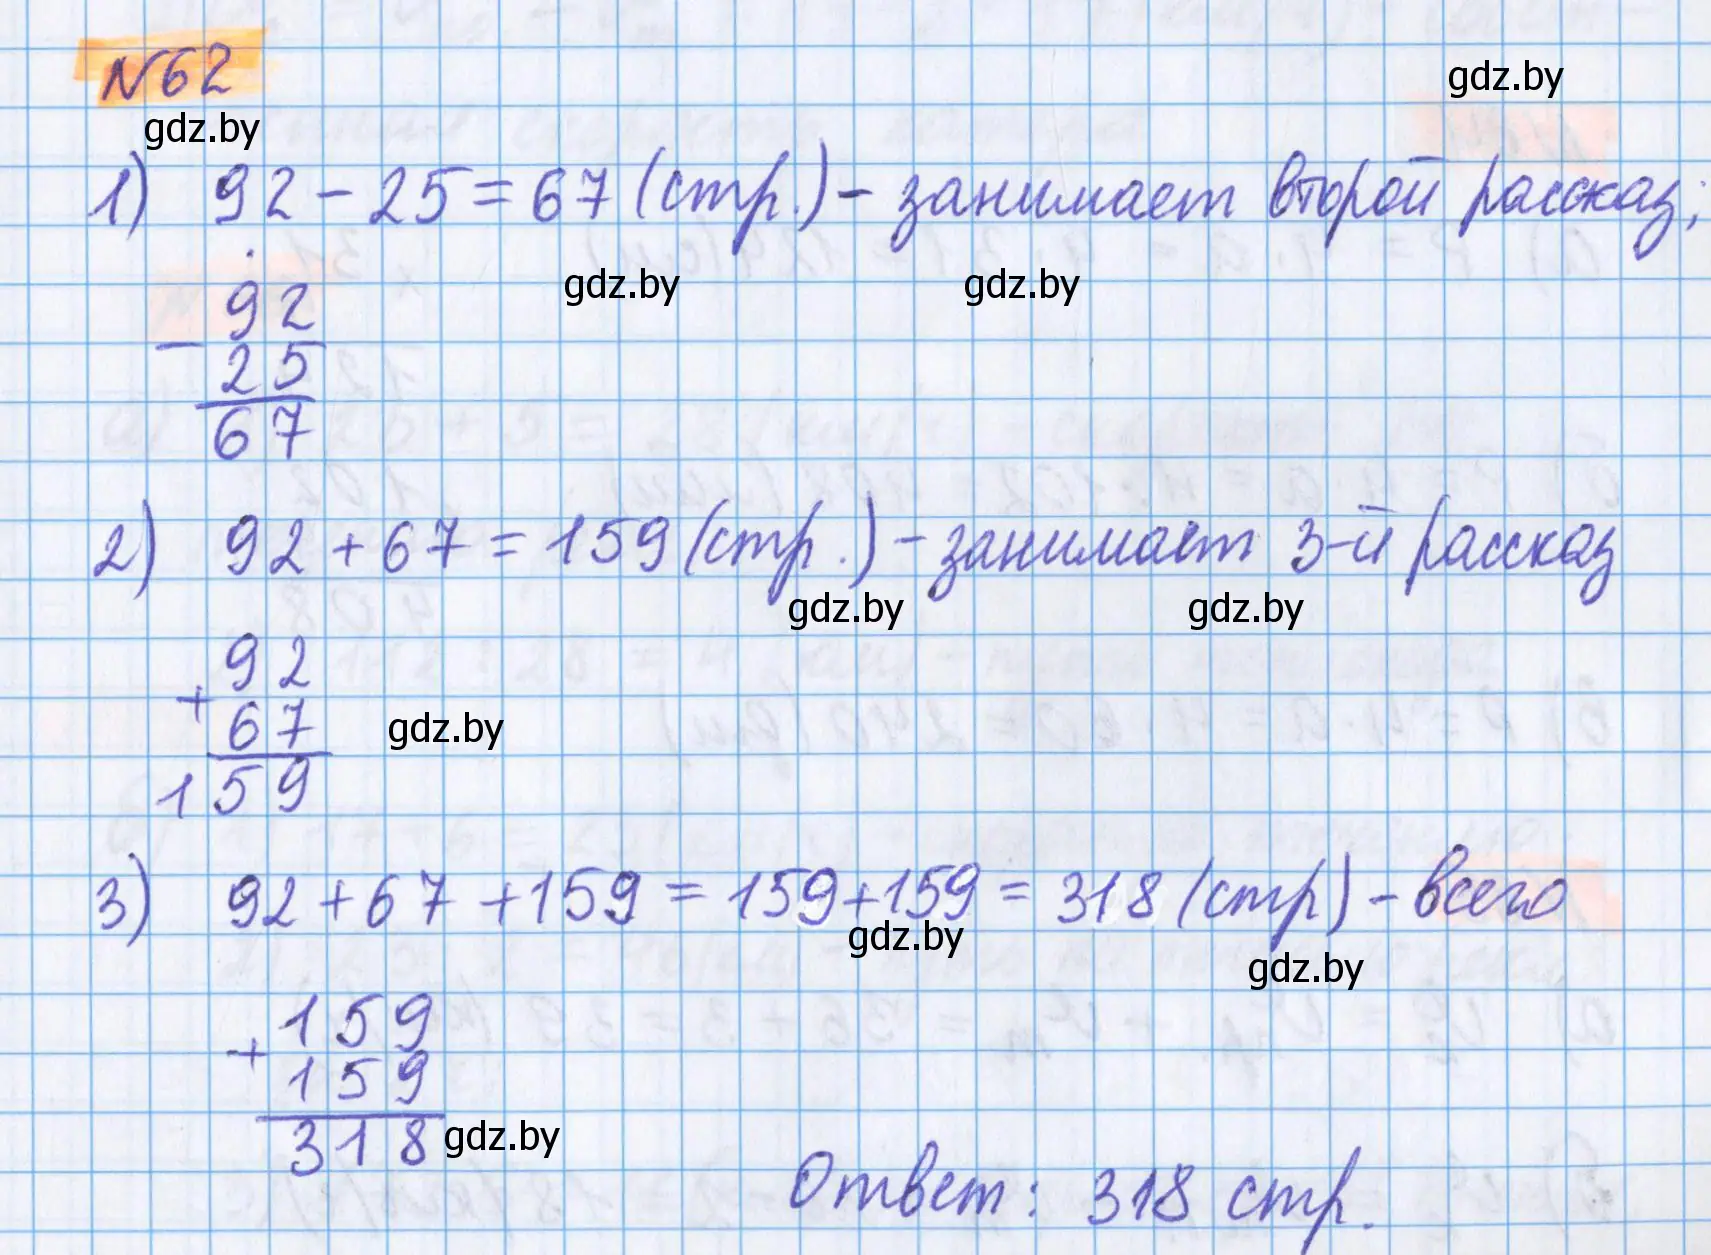 N62
gdz.by
gdz.by
1) 92 - 25 = 67 (стр.) - занимает второй рассказ;
gdz.by gdz.by
92
- 25
67
2) 92 + 67 = 159 (стр.) - занимает 3-й рассказ
gdz.by gdz.by
92
+ 67
159
gdz.by
3) 92 + 67 + 159 = 159 + 159 = 318 (стр) - всего
gdz.by
gdz.by
159
+ 159
318
gdz.by
Ответ: 318 стр.